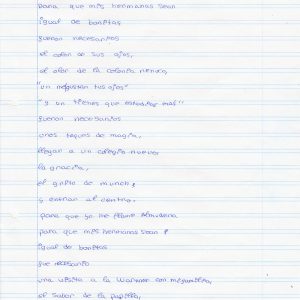 para que mis hermanas sean
igual de bonitas
fueron necesarios
el color de sus ojos,
el olor de la colonia nenuco,
"un me gustan tus ojos"
"y un tienes que estudiar más"
fueron necesarios
unos toques de magia,
llegar a un colegio nuevo,
la gracia,
el grito de munch,
y entrar al centro.
para que yo me llame Almudena
para que mis hermanas sean
igual de bonitas
fue necesario
una visita a la Warner con mi familia,
el sabor de la